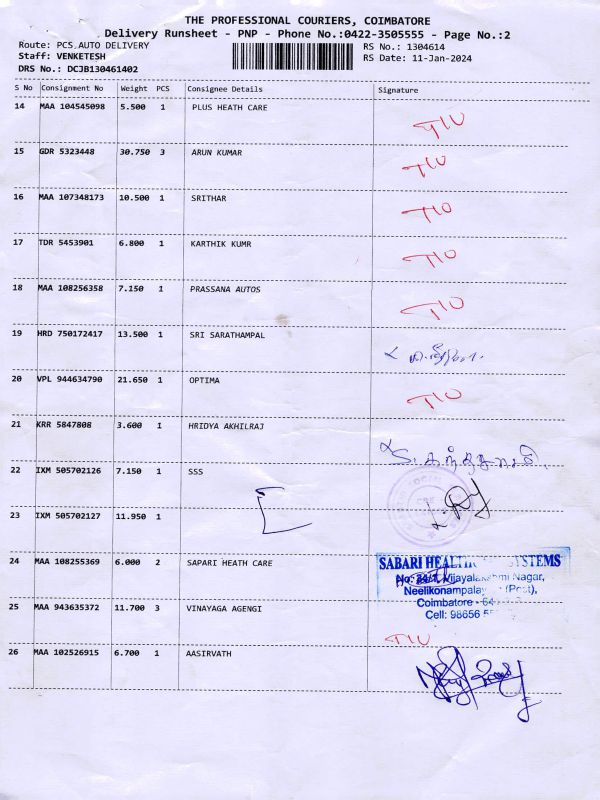 THE PROFESSIONAL COURIERS, COIMBATORE
Delivery Runsheet - PNP - Phone No.:0422-3505555 - Page No.:2
Route: PCS,AUTO DELIVERY RS No.: 1304614
Staff: VENKETESH RS Date: 11-Jan-2024
DRS No.: DCJB130461402
S No Consignment No Weight PCS Consignee Details Signature
14 MAA 104545098 5.500 1 PLUS HEATH CARE
TIU
15 GDR 5323448 30.750 3 ARUN KUMAR
TIU
16 MAA 107348173 10.500 1 SRITHAR
TIU
17 TDR 5453901 6.800 1 KARTHIK KUMR
TIU
18 MAA 108256358 7.150 1 PRASSANA AUTOS
TIU
19 HRD 750172417 13.500 1 SRI SARATHAMPAL
20 VPL 944634790 21.650 1 OPTIMA
TIU
21 KRR 5847808 3.600 1 HRIDYA AKHILRAJ
22 IXM 505702126 7.150 1 SSS
23 IXM 505702127 11.950 1
24 MAA 108255369 6.000 2 SAPARI HEATH CARE
SABARI HEALTH SYSTEMS
Vijayalakshmi Nagar,
Neelikonampalay (Post),
Coimbatore - 64
Cell: 98656
25 MAA 943635372 11.700 3 VINAYAGA AGENGI
TIU
26 MAA 102526915 6.700 1 AASIRVATH